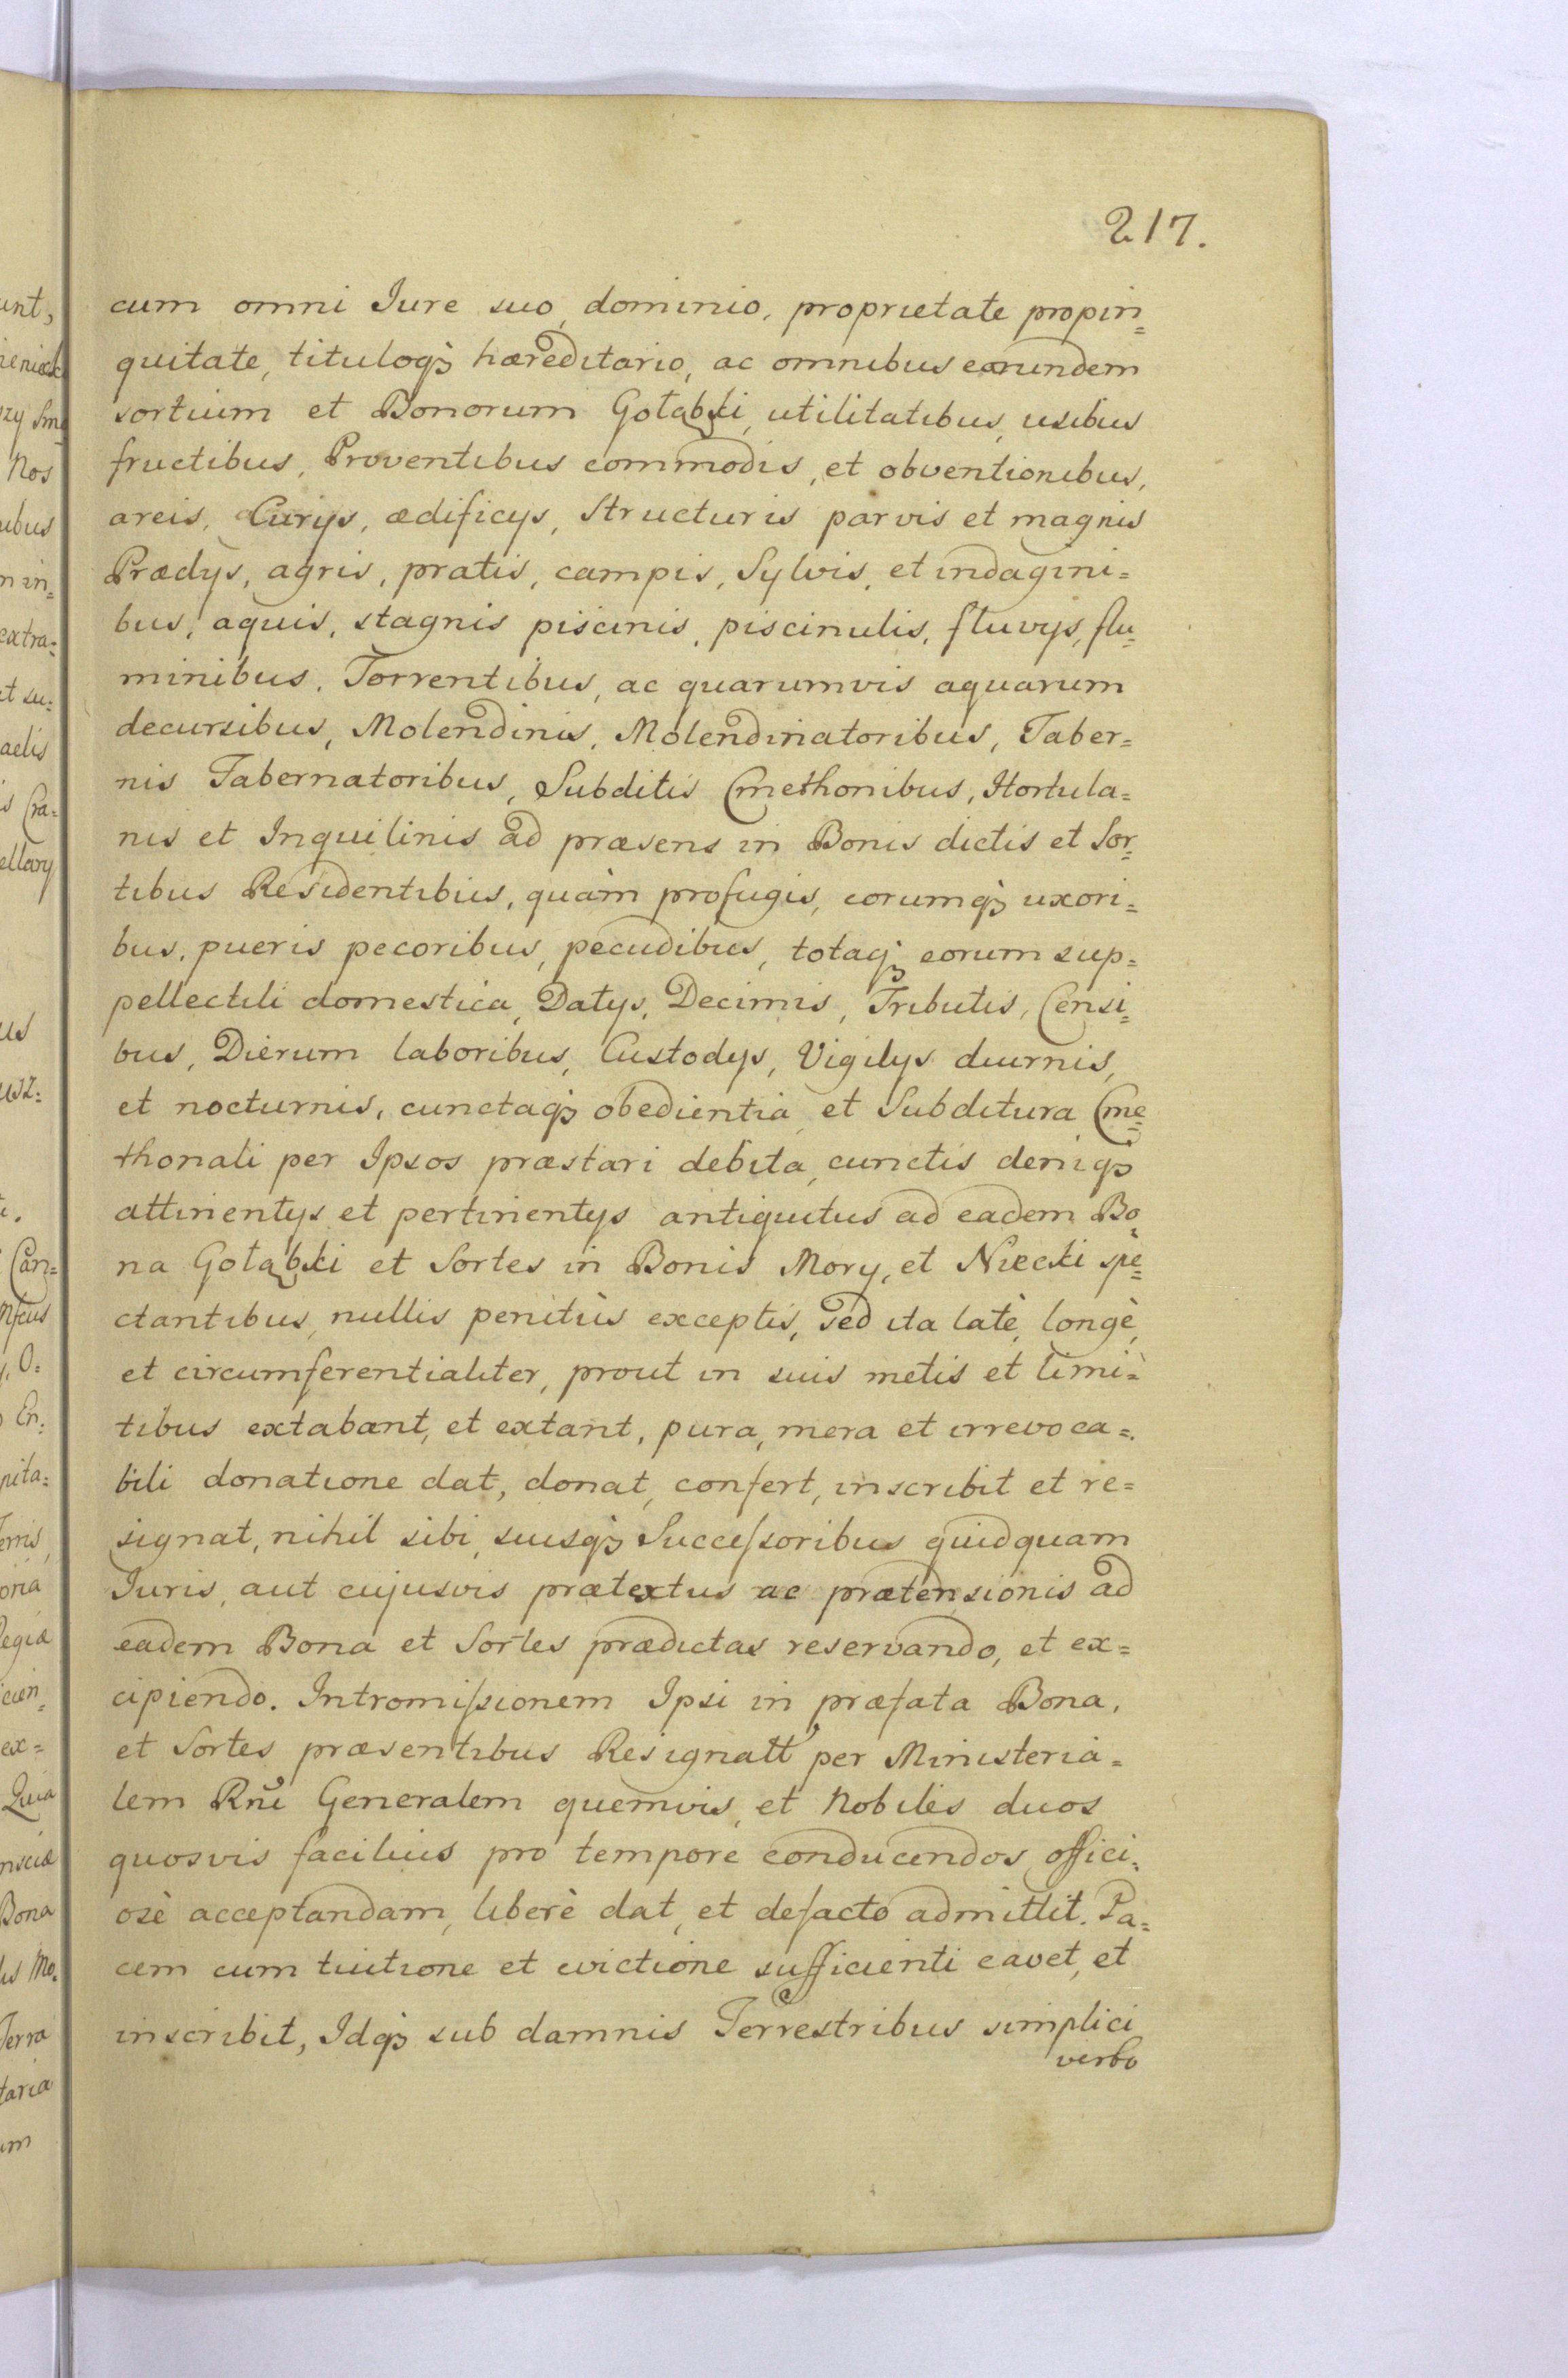 217.
cum omni Iure suo, dominio, proprietate propin=
quitate, tituloq₃ hæreditario, ac omnibus earundem
sortium et Bonorum Gołąbki, utilitatibus, usibus
fructibus, Proventibus commodis, et obventionibus,
areis, Curijs, ædificijs, Structuris parvis et magnis
Prædijs, agris, pratis, campis, Sylvis, et indagini=
bus, aquis, stagnis piscinis, piscinulis, fluvijs, flu=
minibus, Torrentibus, ac quarumvis aquarum
decursibus, Molendinis, Molendinatoribus, Taber=
nis Tabernatoribus, Subditis Cmethonibus, Hortula=
nis et Inquilinis ad præsens in Bonis dictis et Sor=
tibus Residentibus, quàm profugis, eorumq₃ uxori=
bus, pueris pecoribus, pecudibus, totaq₃ eorum sup=
pellectili domestica, Datijs, Decimis, Tributis, Censi=
bus, Dierum laboribus, Custodijs, Vigilijs diurnis,
et nocturnis, cunctaq₃ obedientia, et Subditura Cme=
thonali per Ipsos præstari debita, cunctis deniq₃
attinentijs et pertinentijs antiquitus ad eadem Bo=
na Gołąbki et Sortes in Bonis Mory, et Niecki spe=
ctantibus, nullis penitùs exceptis, sed ita latè, longè,
et circumferentialiter, prout in suis metis et limi=
tibus extabant, et extant, pura, mera et irrevoca=
bili donatione dat, donat, confert, inscribit et re=
signat, nihil sibi, suisq₃ Successoribus quidquam
Iuris, aut cujusvis prætextus ac prætensionis ad
eadem Bona et Sortes prædictas reservando, et ex=
cipiendo. Intromissionem Ipsi in præfata Bona,
et Sortes præsentibus Resignatt per Ministeria=
lem Rñi Generalem quemvis, et Nobiles duos
quosvis facilius pro tempore conducendos offici=
osè acceptandam, liberè dat, et defacto admittit. Pa=
cem cum tuitione et evictione sufficienti cavet, et
inscribit, Idq₃ sub damnis Terrestribus simplici
verbo